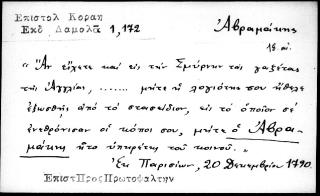 Επιστολ Κοραη
Εκδ Δαμαλᾶ 1,172
Ἀβραμάκης
18 αἰ.
"Ἂν εἴχετε καὶ εἰς τὴν Σμύρνην τὰς γαζέτας
τῆς Ἀγγλίας, ....... μήτε ἡ λογιότης σου ἤθελε
ἐξωσθῆς ἀπὸ τὸ στασείδιον, εἰς τὸ ὁποῖον σὲ
ἐνεθρόνισαν οἱ κόποι σου, μήτε ὁ Ἀβρα-
μάκης ἦτο ὑπηρέτης τοῦ κοινοῦ."
Ἐκ Παρισίων, 20 Δεκεμβρίου 1790.
ΕπιστΠροςΠρωτοψαλτην